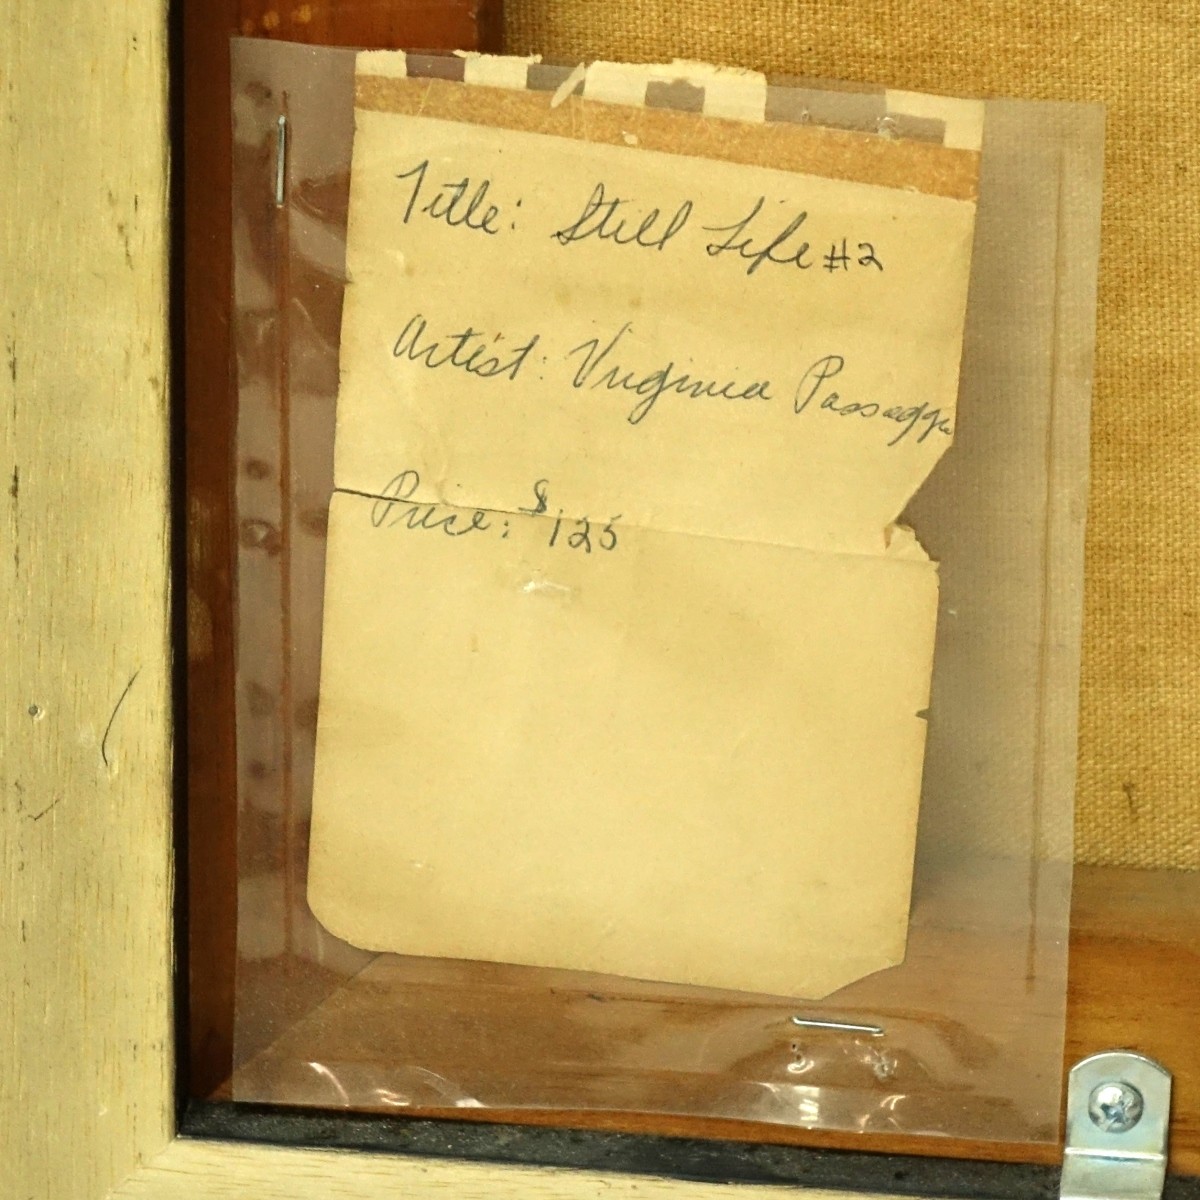 Title: Still Life #2
Artist: Virginia Passagg
Price: $125